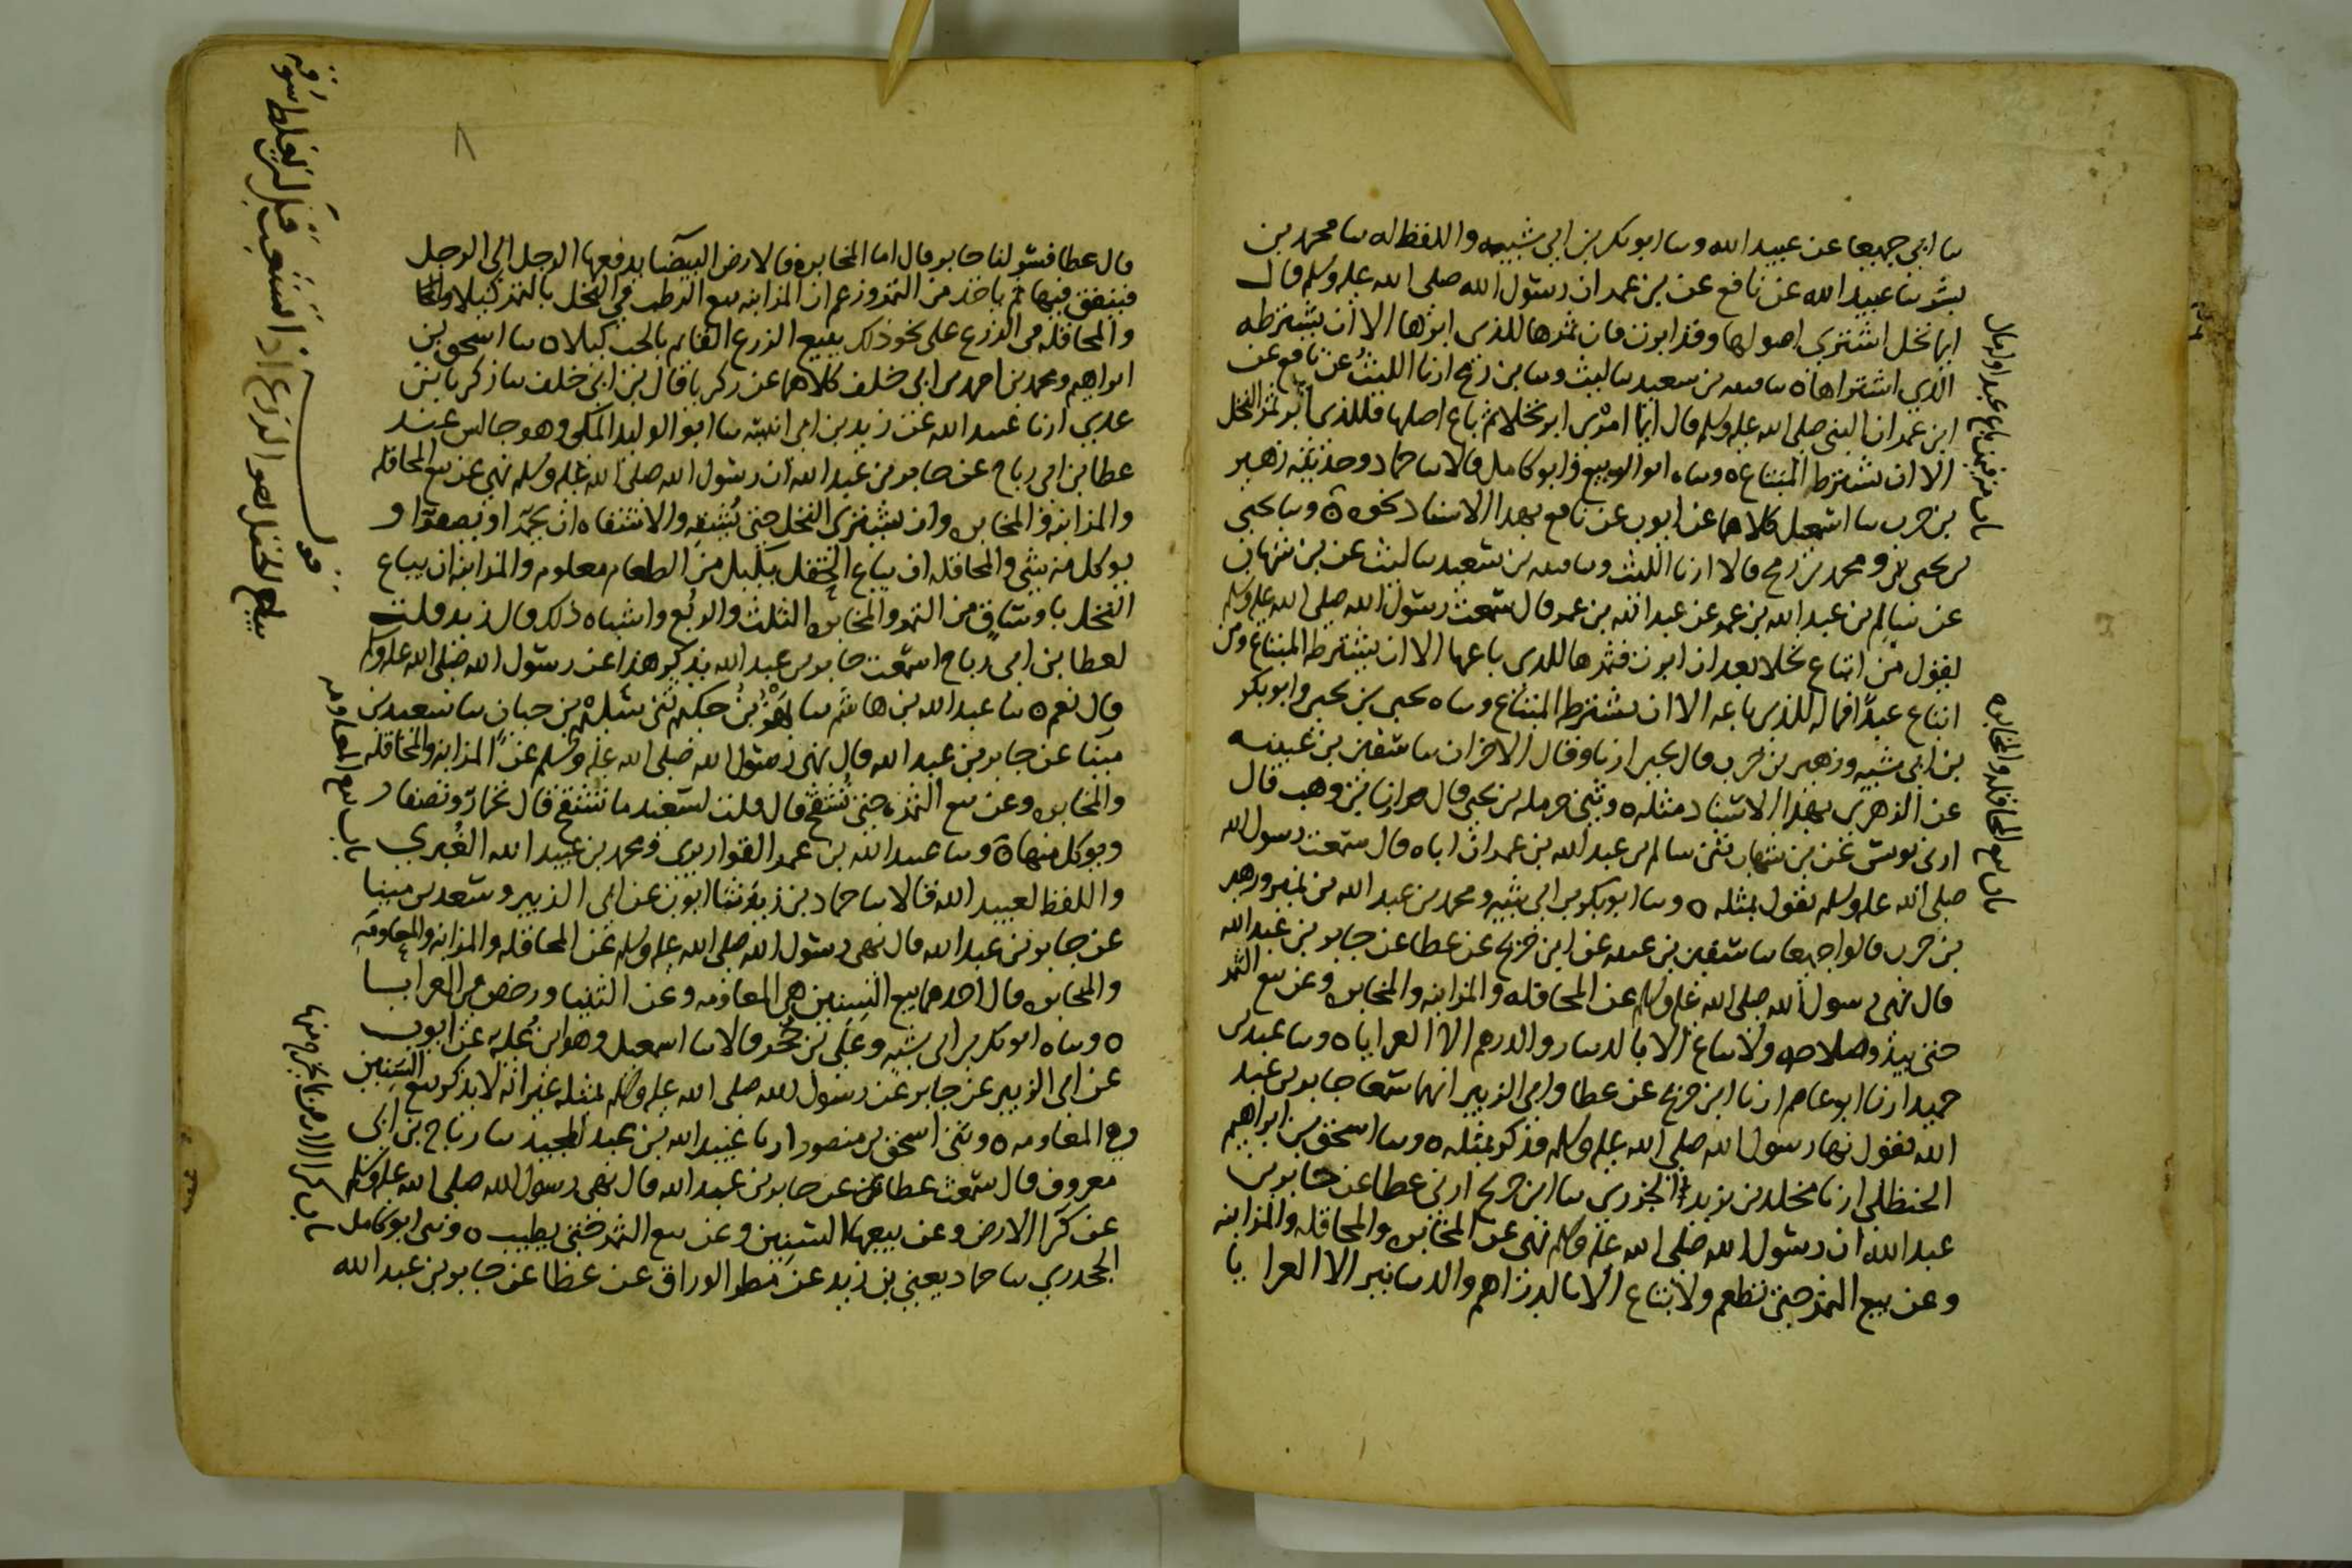 سا ابي جميعا عن عبيد الله وسا ابو بكر بن ابي شيبه واللفظ له سا محمد بن
بشر سا عبيد الله عن نافع عن بن عمر ان رسول الله صلى الله عليه وسلم قال
ايما نخل اشتري اصولها وقد ابرت فان ثمرها للذي ابرها الا ان يشترط
الذي اشتراها ٥ سا قتيبه بن سعيد سا ليث وسا بن رمح ارنا الليث عن نافع عن
ابن عمر ان النبي صلى الله عليه وسلم قال ايما امرئ ابر نخلا ثم باع اصلها فللذي ابر ثمر النخل
الا ان يشترط المبتاع ٥ وسا ابو الربيع وابو كامل قالا سا حماد وحدثنيه زهير
بن حرب سا اسمعيل كلاهما عن ايوب عن نافع بهذا الاسناد نحوه ٥ وسا يحيى
بن يحيى ومحمد بن رمح قالا ارنا الليث وسا قتيبه بن سعيد سا ليث عن بن شهاب
عن سالم بن عبد الله بن عمر عن عبد الله بن عمر قال سمعت رسول الله صلى الله عليه وسلم
يقول من ابتاع نخلا بعد ان ابرت فثمرها للذي باعها الا ان يشترط المبتاع ومن
ابتاع عبدا فماله للذي باعه الا ان يشترط المبتاع وسا ه يحيى بن يحيى وابو بكر
بن ابي شيبه وزهير بن حرب قال يحيى ارنا وقال الاخران سا سفين بن عيينه
عن الزهري بهذا الاسناد مثله ٥ وثني حرمله بن يحيى قال ارنا بن وهب قال
ارني يونس عن بن شهاب ثني سالم بن عبد الله بن عمر ان اباه قال سمعت رسول الله
صلى الله عليه وسلم يقول بمثله ٥ وسا ابو بكر بن ابي شيبه ومحمد بن عبد الله بن نمير وزهير
بن حرب قالوا جميعا سا سفين بن عيينه عن ابن جريج عن عطا عن جابر بن عبد الله
قال نهى رسول الله صلى الله عليه وسلم عن المحاقله والمزابنه والمخابره وعن بيع الثمر
حتى يبدو صلاحه ولا يباع الا بالدينار والدرهم الا العرايا ٥ وسا عبد بن
حميد ارنا ابو عاصم ارنا ابن جريج عن عطا وابي الزبير انهما سمعا جابر بن عبد
الله يقول نها رسول الله صلى الله عليه وسلم فذكر بمثله ٥ وسا اسحق بن ابراهيم
الحنظلي ارنا مخلد بن يزيد الجزري سا ابن جريج ارني عطا عن جابر بن
عبد الله ان رسول الله صلى الله عليه وسلم نهى عن المخابره والمحاقله والمزابنه
وعن بيع الثمر حتى تطعم ولا تباع الا بالدراهم والدنانير الا العرايا
باب من باع عبدا وله مال
باب بيع المحاقله والمخابره
٨
قال عطا فسر لنا جابر قال اما المخابرة فالارض البيضا يدفعها الرجل الى الرجل
فينفق فيها ثم ياخذ من الثمر وزعم ان المزابنه بيع الرطب في النخل بالتمر كيلا
والمحاقله في الزرع على نحو ذلك يبيع الزرع القايم بالحب كيلا ٥ سا اسحق بن
ابراهيم ومحمد بن احمد بن ابي خلف كلاهما عن زكريا قال بن ابي خلف سا زكريا بن
عدي ارنا عبيد الله عن زيد بن ابي انيسه سا ابو الوليد المكي وهو جالس عند
عطا بن ابي رباح عن جابر بن عبد الله ان رسول الله صلى الله عليه وسلم نهى عن بيع المحاقله
والمزابنه والمخابره وان يشتري النخل حتى تشقه والاشقاه ان يحمر او يصفر او
يوكل منه شي والمحاقله ان يباع الحقل بكيل من الطعام معلوم والمزابنه ان يباع
النخل باوساق من التمر والمخابره الثلث والربع واشباه ذلك قال زيد قلت
لعطا بن ابي رباح اسمعت جابر بن عبد الله يذكر هذا عن رسول الله صلى الله عليه وسلم
قال نعم ٥ سا عبد الله بن هاشم سا بهز بن حكيم ثني سليم بن حيان سا سعيد بن
مينا عن جابر بن عبد الله قال نهى رسول الله صلى الله عليه وسلم عن المزابنه والمحاقله
والمخابره وعن بيع الثمر حتى تشقح قال قلت لسعيد ما تشقح قال تحمار وتصفار
ويوكل منها ٥ وسا عبيد الله بن عمر القواريري ومحمد بن عبيد الله الغبري
واللفظ لعبيد الله قالا سا حماد بن زيد سا ايوب عن ابي الزبير وسعيد بن مينا
عن جابر بن عبد الله قال نهى رسول الله صلى الله عليه وسلم عن المحاقله والمزابنه والمعاومه
والمخابره قال احدهما بيع السنين هي المعاومه وعن الثنيا ورخص في العرايا
٥ وسا ه ابو بكر بن ابي شيبه وعلي بن حجر قالا سا اسمعيل وهو ابن عليه عن ايوب
عن ابي الزبير عن جابر عن رسول الله صلى الله عليه وسلم بمثله غير انه لا يذكر بيع السنين
وهي المعاومه ٥ وثني اسحق بن منصور ارنا عبيد الله بن عبد المجيد سا رباح بن ابي
معروف قال سمعت عطا عن جابر بن عبد الله قال نهى رسول الله صلى الله عليه وسلم
عن كرا الارض وعن بيعها السنين وعن بيع الثمر حتى يطيب ٥ وثني ابو كامل
الجحدري سا حماد يعني بن زيد عن مطر الوراق عن عطا عن جابر بن عبد الله
بيع الحقل هو الزرع اذا تشعب قبل ان يغلظ سوقه
باب بيع المعاومه
باب كرا الارض بما يخرج منها